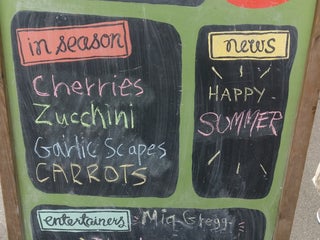 in season
Cherries
Zucchini
Garlic Scapes
CARROTS
news
HAPPY
SUMMER
entertainers